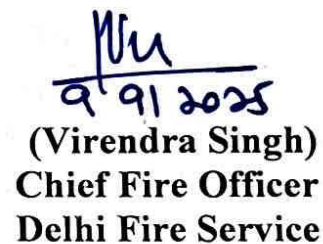 9 9/ 2025
(Virendra Singh)
Chief Fire Officer
Delhi Fire Service